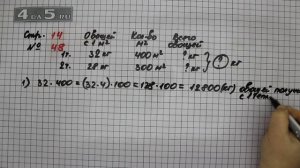 4 da 5.ru
Стр. 14 Овощей Кол-во Всего
№ 48 с 1 м² м² овощей
1т. 32 кг 400 м² ? кг
2т. 28 кг 300 м² ? кг } ? кг
1) 32·400=(32·4)·100=128·100=12800(кг) овощей получи
с 1 теп